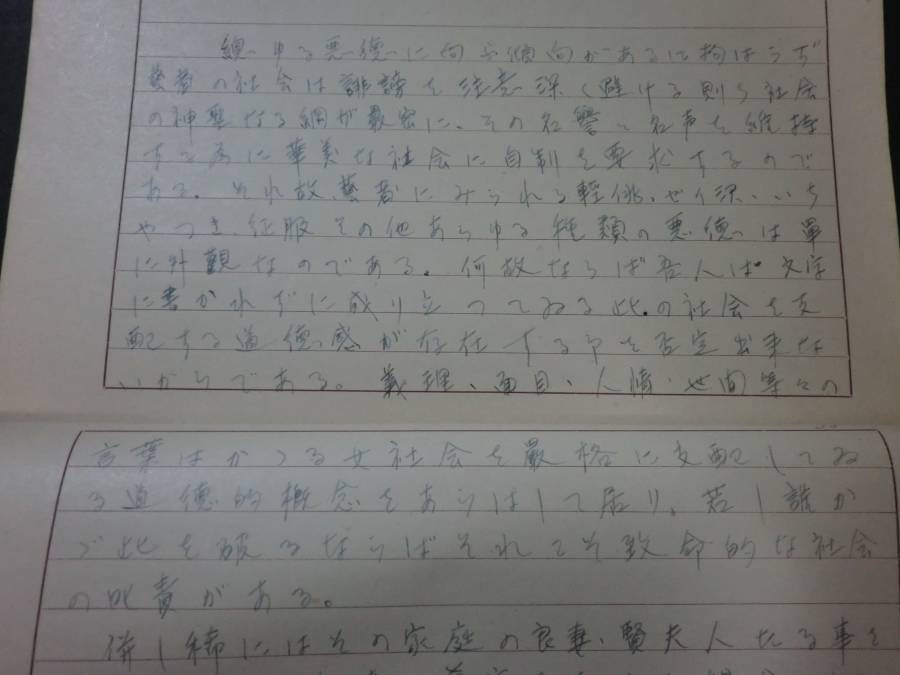 總ゆる悪德に向ふ傾向があるに拘はらず
藝者の社会は誹謗を注意深く避ける則ち社会
の神聖なる網が嚴密に、その名譽と名声を維持
する為に華美な社会に自制を要求するので
ある。それ故、藝者にみられる軽佻、ぜい沢、いち
やつき、征服その他あらゆる種類の悪德は單
に外觀なのである。何故ならば吾人は文字
に書かれずに成り立つてゐる此の社会を支
配する道德感が存在する事を否定出来な
いからである。義理、面目、人情、世間等々の
言葉はかゝる女社会を嚴格に支配してゐ
る道德的概念をあらはして居り、若し誰か
が此を破るならばそれこそ致命的な社会
の叱責がある。
併し稀にはその家庭の良妻、賢夫人たる事を